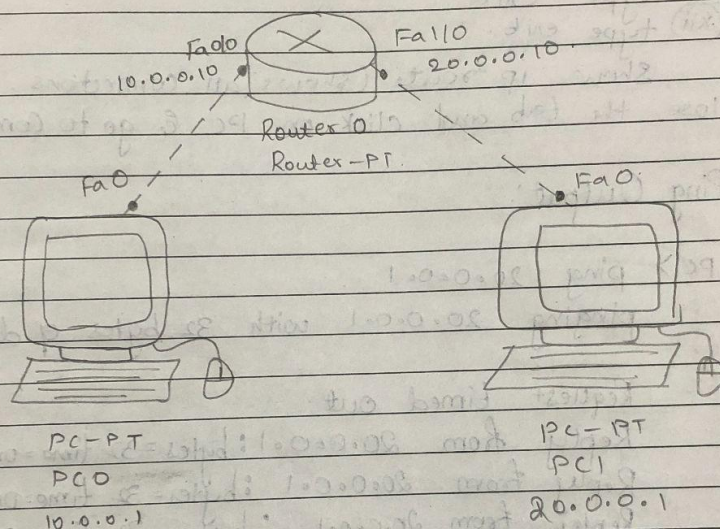 Fa0/0
Fa1/0
10.0.0.10
20.0.0.10
Router 0
Router-PT.
Fa0
Fa0
PC-PT
PC0
10.0.0.1
PC-PT
PC1
20.0.0.1